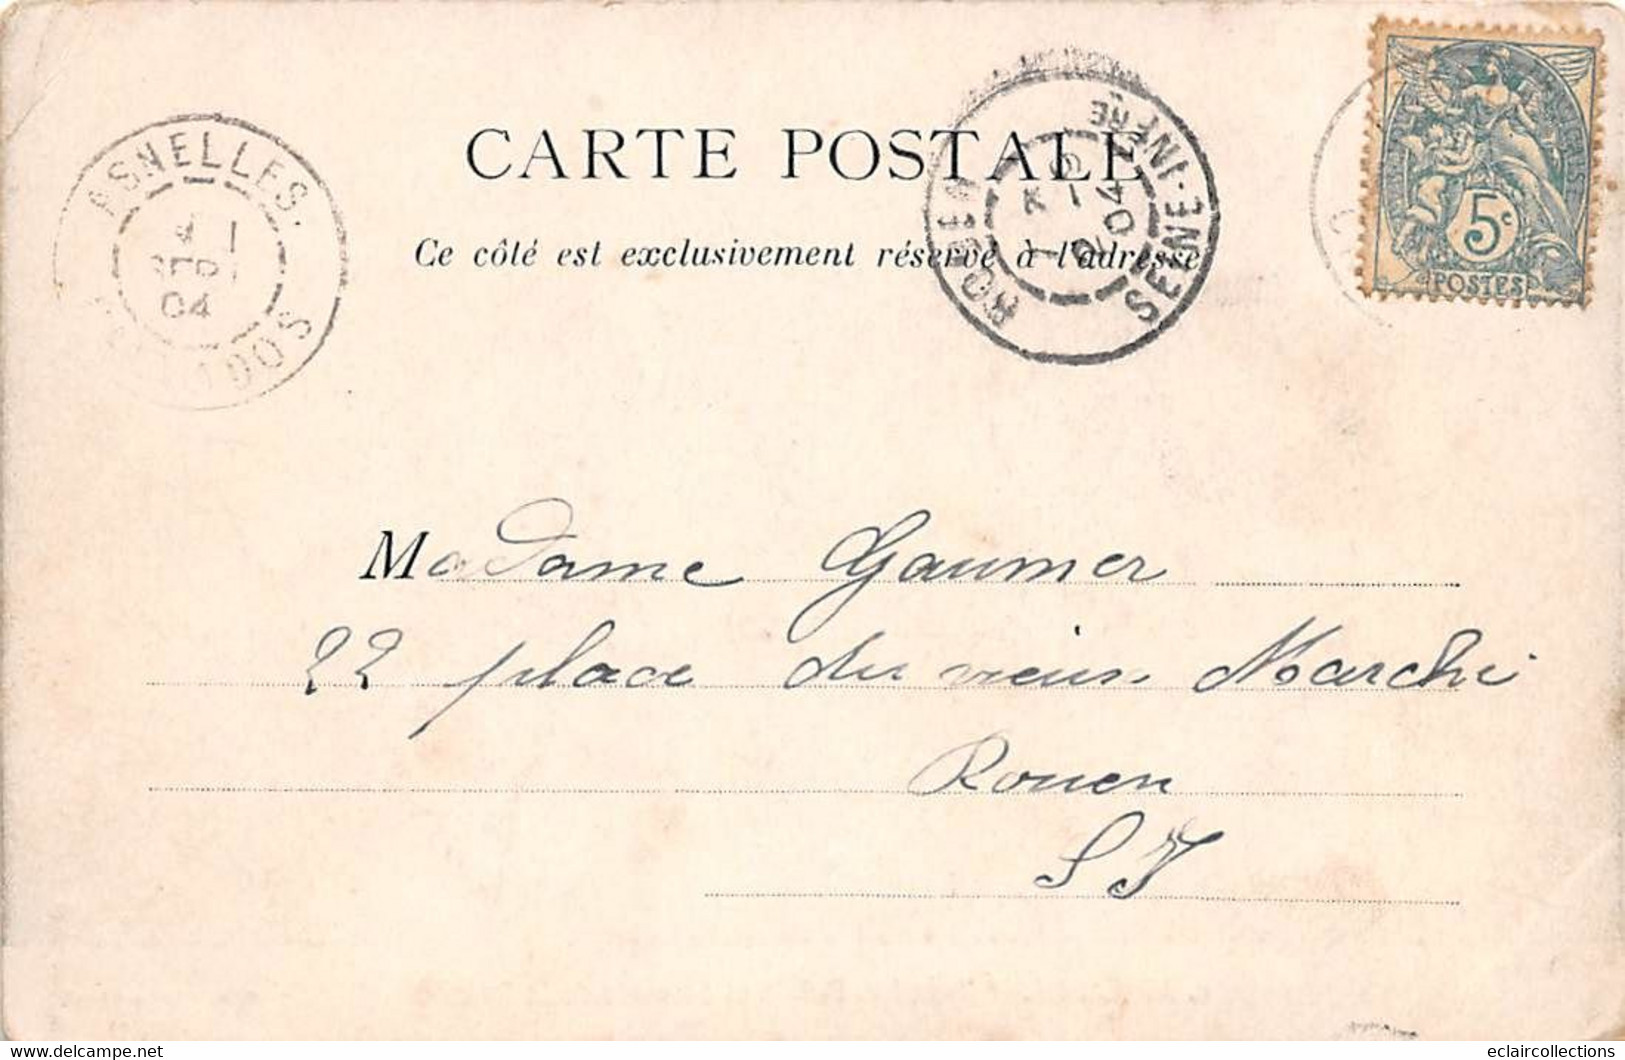 CARTE POSTALE
Ce côté est exclusivement réservé à l'adresse
ASNELLES.
04
ROUEN
SEINE-INFRE
04
5c
POSTES
Madame Gaumer
22 place du vieux Marché
Rouen
S I
eclaircollections